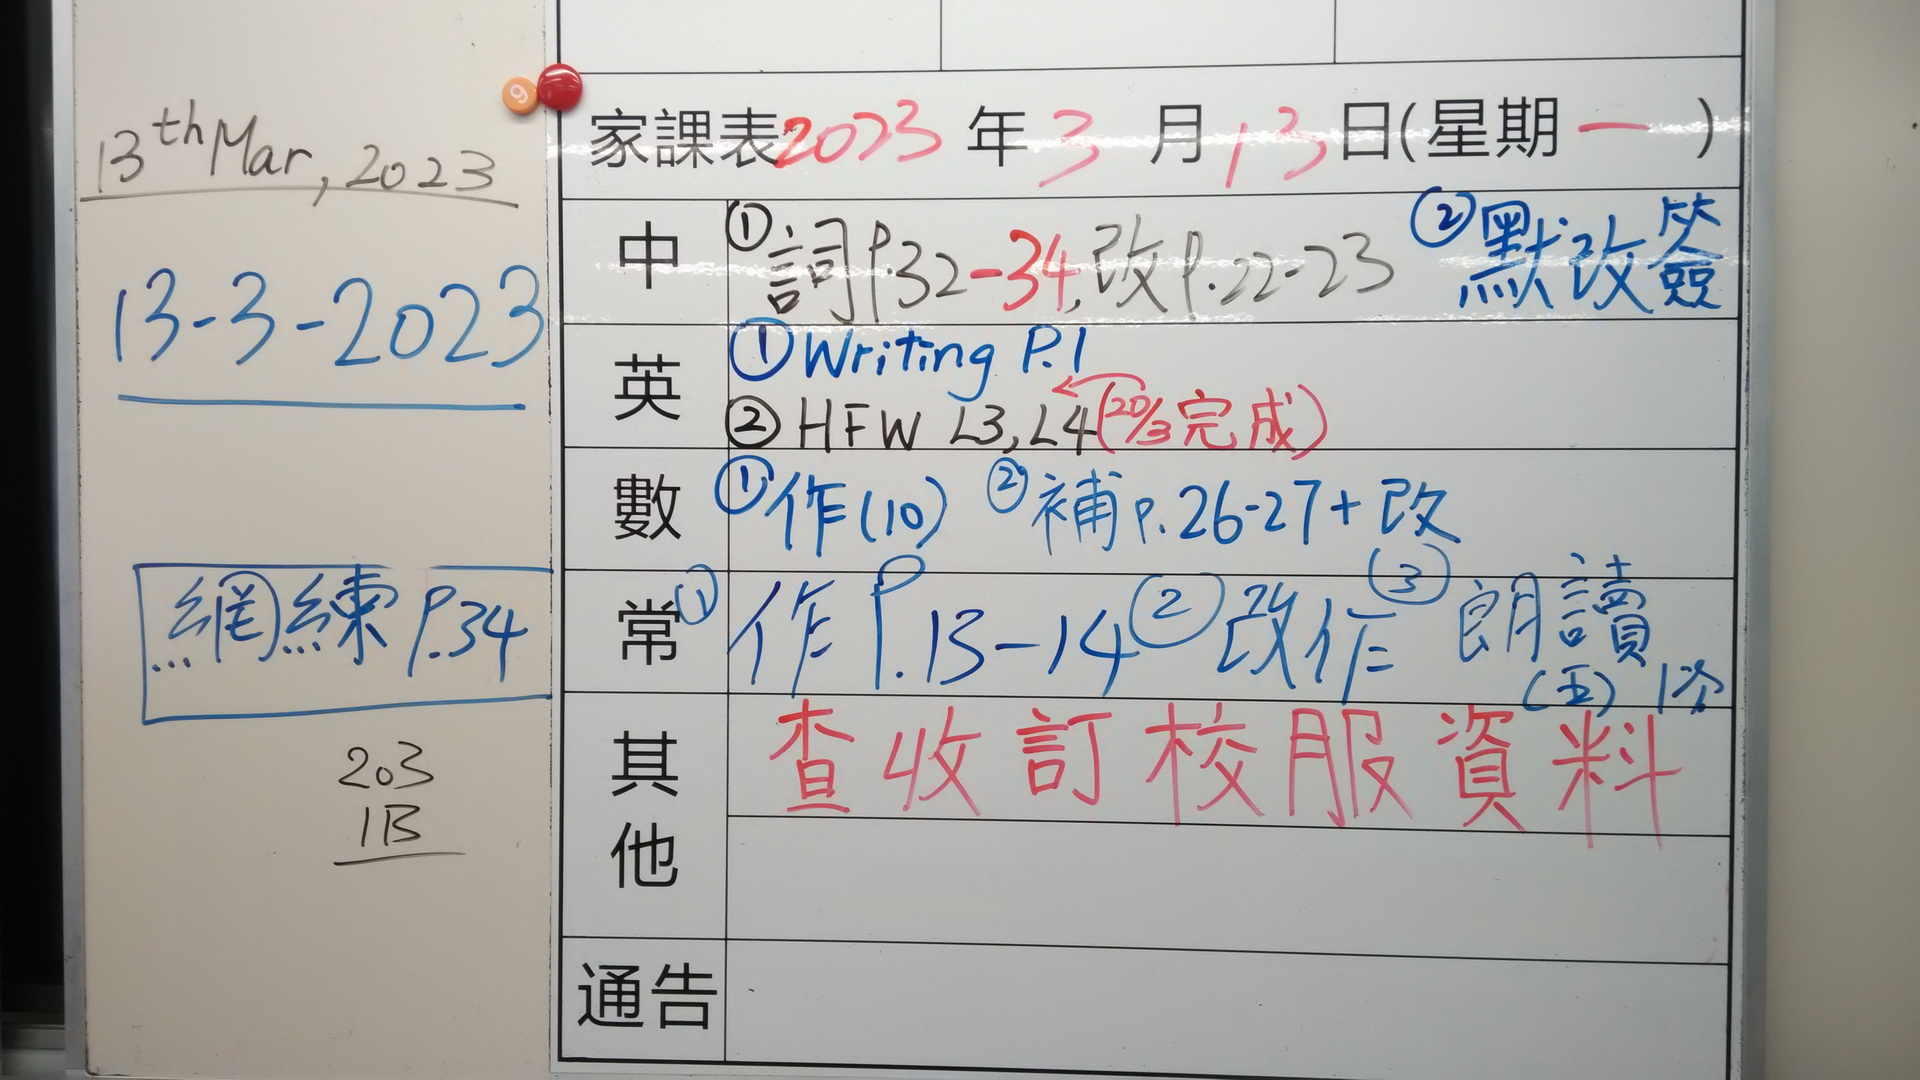 13th Mar, 2023
13-3-2023
網練 P.34
203
1B
9
家課表2023年3月13日(星期一)
中 ①詞P.32-34,改P.22-23 ②默改簽
英 ①Writing P.1
②HFW L3, L4(20/3完成)
數 ①作(10) ②補p.26-27+改
常 ①作P.13-14 ②改作 ③朗讀
(五)1次
其他 查收訂校服資料
通告